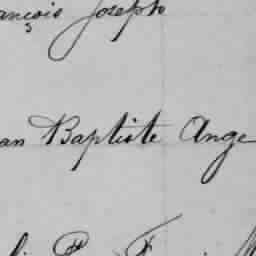 ançois Joseph
an Baptiste Ange